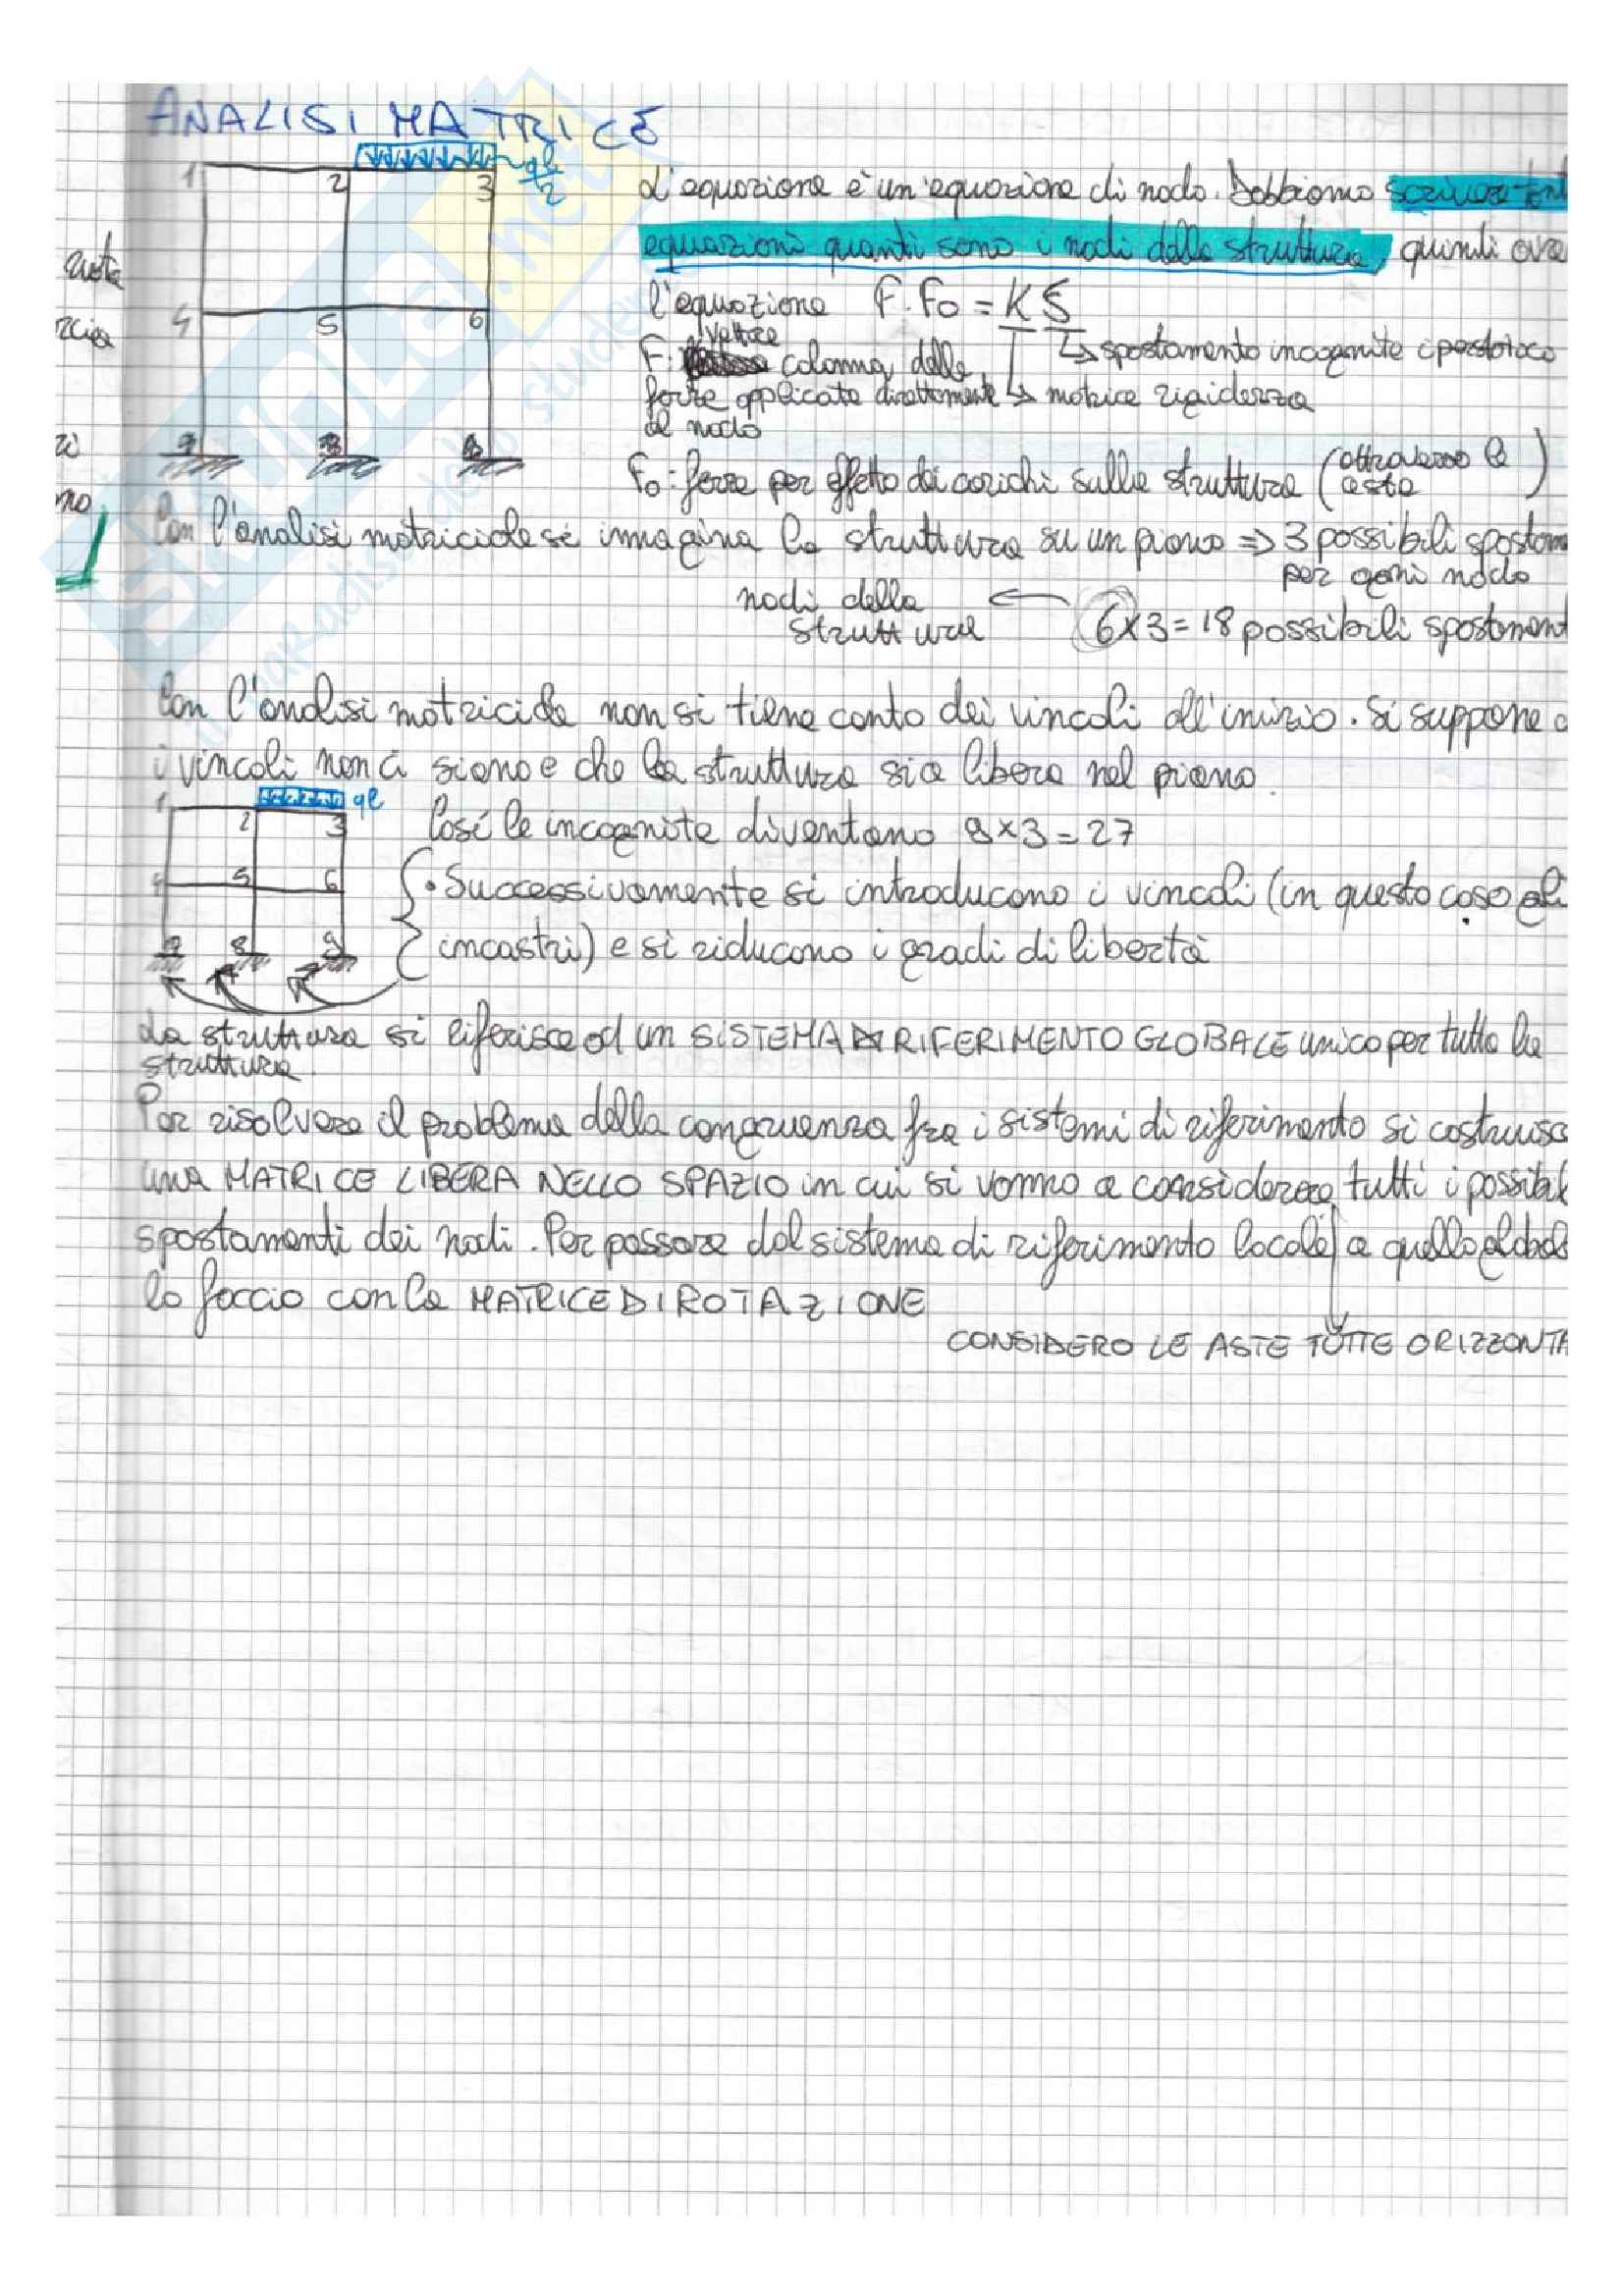 ANALISI MATRICE
1 2 3 ql/2
L'equazione è un'equazione di nodo. Dobbiamo scrivere tant
ruota
equazioni quanti sono i nodi della struttura, quindi avre
l'equazione F-F0 = K S
4 5 6
rcia
vettore
F: colonna delle
forze applicate direttamente
al nodo
↳ spostamento incognite iperstatica
↳ matrice rigidezza
zi
7 8 9
F0: forze per effetto dei carichi sulla struttura (attraverso le aste)
no
Con l'analisi matriciale si immagina la struttura su un piano => 3 possibili spostam
per ogni nodo
nodi della struttura ← 6x3=18 possibili spostament
Con l'analisi matriciale non si tiene conto dei vincoli all'inizio. Si suppone c
i vincoli non ci siano e che la struttura sia libera nel piano.
1 2 3 ql
Così le incognite diventano 9x3=27
4 5 6
• Successivamente si introducono i vincoli (in questo caso gli
incastri) e si riducono i gradi di libertà
7 8 9
La struttura si riferisce ad un SISTEMA DI RIFERIMENTO GLOBALE unico per tutta la
struttura
Per risolvere il problema della congruenza fra i sistemi di riferimento si costruisc
una MATRICE LIBERA NELLO SPAZIO in cui si vanno a considerare tutti i possibil
spostamenti dei nodi. Per passare dal sistema di riferimento locale a quello global
lo faccio con la MATRICE DI ROTAZIONE
CONSIDERO LE ASTE TUTTE ORIZZONTA